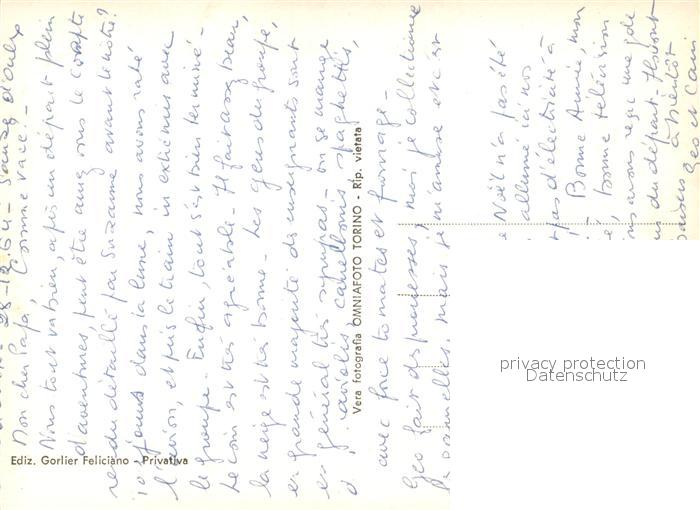 28-12-64 - Sauze d'Oulx
Mon cher Papa,
Nous tout va bien, après un départ plein
d'aventures, peut être aurez vous le compte
rendu détaillé par Suzanne avant le nôtre?
jours dans la lune, nous avons raté
l'avion, et pris le train in extremis avec
le groupe. Enfin, tout s'est bien terminé -
Le coin est très agréable - Il fait assez beau,
la neige est très bonne - Les gens du groupe,
en grande majorité des enseignants sont
en général très sympas - on se mange
raviolis, canellonis, spaghettis,
avec force tomates et fromage -
Geo fait des prouesses, moi je collectionne
mais je m'amuse et c'est
Noël n'a pas été
allumé ici nos
pas d'électricité à
Bonne Année, mon
bonne télévision
avons reçu une gde
du départ - Ils vont
à bientôt
Geo et Cari
Ediz. Gorlier Feliciano - Privativa
Vera fotografia OMNIAFOTO TORINO - Rip. vietata
privacy protection
Datenschutz